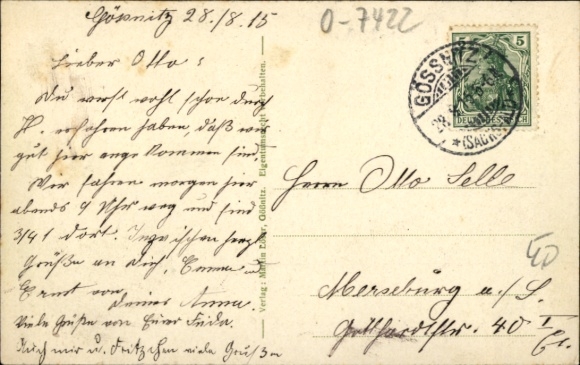 Gössnitz 28./8.15
0-7422
Lieber Otto!
Du wirst wohl schon durch
H. erfahren haben, daß wir
gut hier angekommen sind.
Wir fahren morgen hier
abends 9 Uhr weg und sind
3/4 1 dort. Inzwischen herzl.
Grüße an Dich, Emma u.
Ernst von Deiner Anna.
Viele Grüße von Euer Frida.
Auch mir u. Fritzchen viele Grüße
Verlag: Martin Löser, Gößnitz. Eigentumsrecht vorbehalten.
5 5
DEUTSCHES REICH
GÖSSNITZ
*(SACHS.
Herrn Otto Selle
Merseburg a./S.
Gotthardtstr. 40 I
40